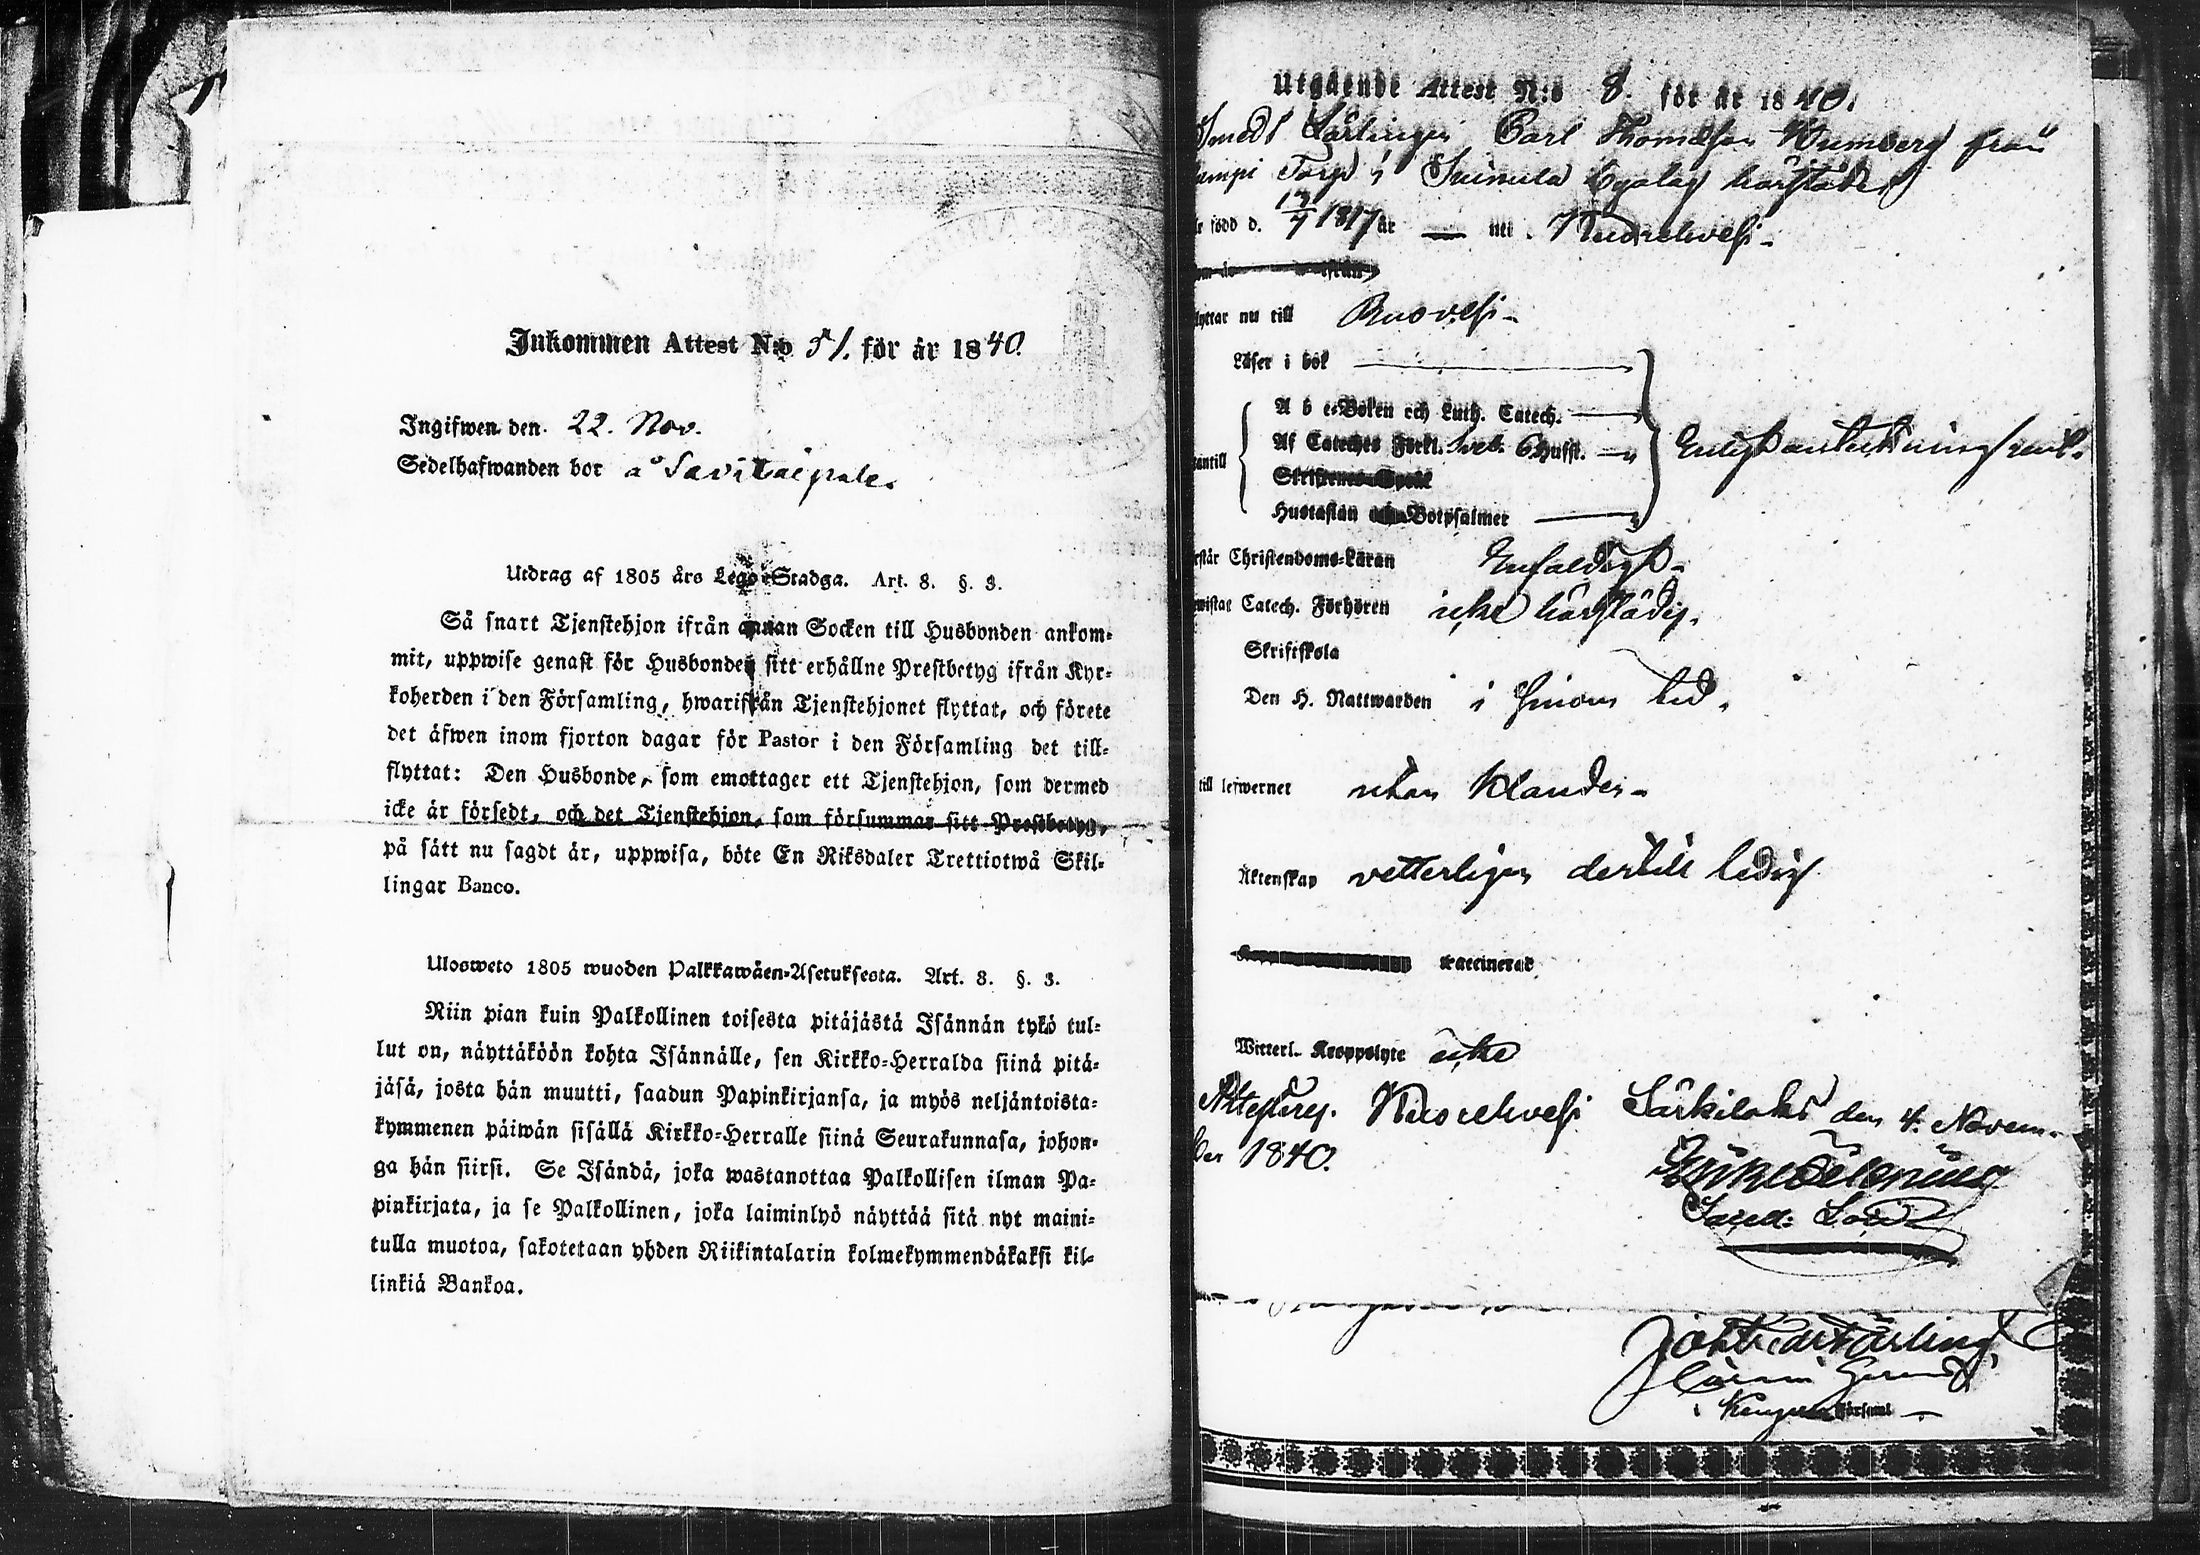 Inkommen Attest N:o 51. för år 1840.
Ingifwen den 22. Nov.
Sedelhafwanden bor å Savikaipale.
Utdrag af 1805 års Lego-Stadga. Art. 8. §. 3.
Så snart Tjenstehjon ifrån annan Socken till Husbonden ankom-
mit, uppwise genast för Husbonden sitt erhållne Prestbetyg ifrån Kyr-
koherden i den Församling, hwarifrån Tjenstehjonet flyttat, och förete
det äfwen inom fjorton dagar för Pastor i den Församling det till-
flyttat: Den Husbonde, som emottager ett Tjenstehjon, som dermed
icke är försedt, och det Tjenstehjon, som försummar sitt Prestbetyg,
på sätt nu sagdt är, uppwisa, böte En Riksdaler Trettiotwå Skil-
lingar Banco.
Ulosweto 1805 wuoden Palkkawäen-Asetuksesta. Art. 8. §. 3.
Niin pian kuin Palkollinen toisesta pitäjästä Isännän tykö tul-
lut on, näyttäköön kohta Isännälle, sen Kirkko-Herralda siinä pitä-
jäsä, josta hän muutti, saadun Papinkirjansa, ja myös neljäntoista-
kymmenen päiwän sisällä Kirkko-Herralle siinä Seurakunnasa, johon-
ga hän siirsi. Se Isändä, joka wastanottaa Palkollisen ilman Pa-
pinkirjata, ja se Palkollinen, joka laiminlyö näyttää sitä nyt maini-
tulla muotoa, sakotetaan yhden Riikintalarin kolmekymmendäkaksi kil-
linkiä Bankoa.
Utgående Attest N:o 8. för år 1840.
Smeds Lärlingen Carl Thomasson Humberg från
Torp i Suinula härstädes
född d. 1817 uti Kuorehvesi
flyttar nu till Ruovesi
Läser i bok
A b c-Boken och Luth. Catech.
Af Cateches Förkl. Sveb. 6 Husst.
Skriftenes Språk
Hustaflan och Botpsalmer
Christendoms-Läran Enfaldigt
Catech. Förhören icke härstädes.
Skriftskola
Den H. Nattwarden i sinom tid.
till lefwernet utan klander
Äktenskap vetterligen dertill ledig
vaccinerad
Witterl. Kroppslyte icke
Attesteres. Kuorehvesi Särkilaks den 4. Novem-
ber 1840.
Församl